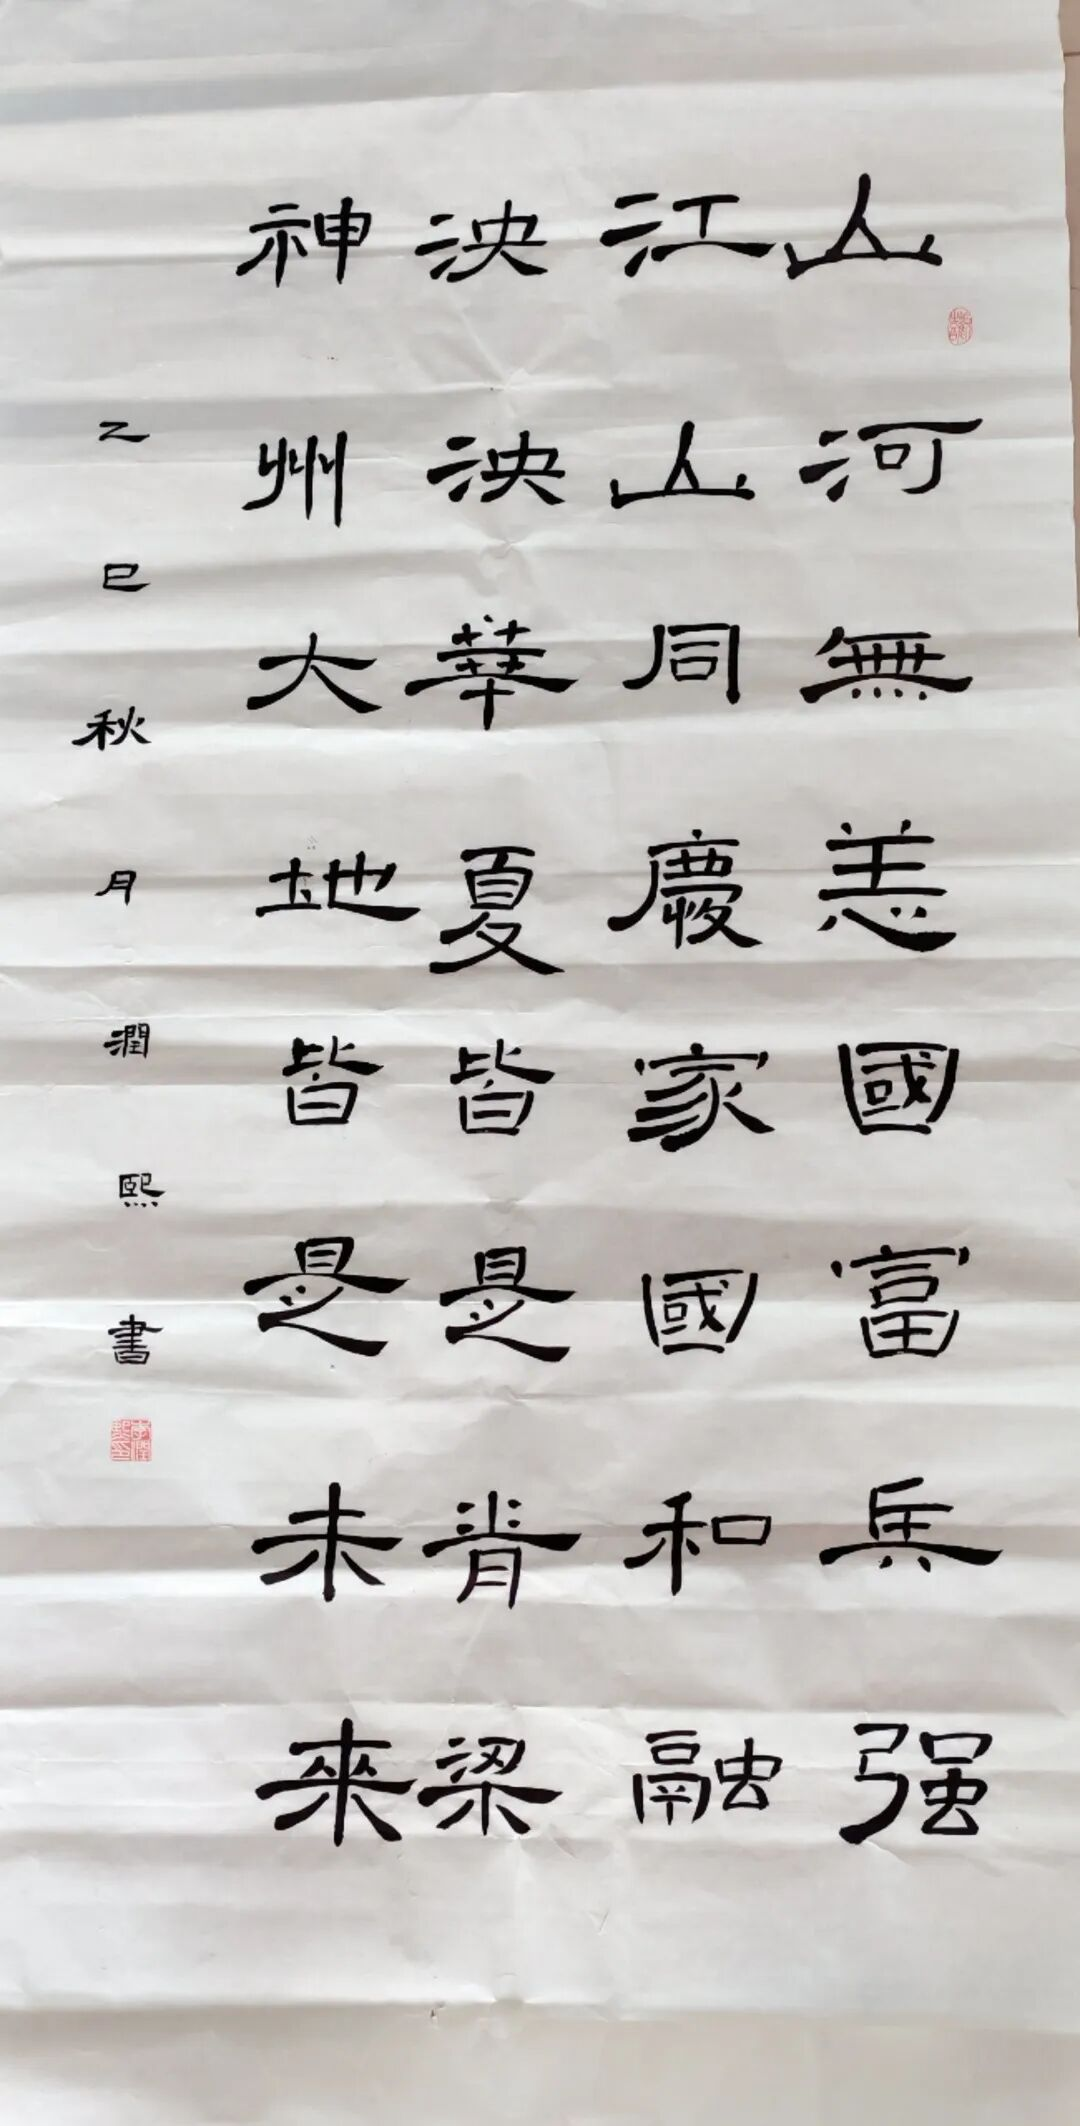 山河無恙國富兵强
江山同慶家國和融
泱泱華夏皆是脊梁
神州大地皆是未來
乙巳秋月潤熙書
李潤熙印